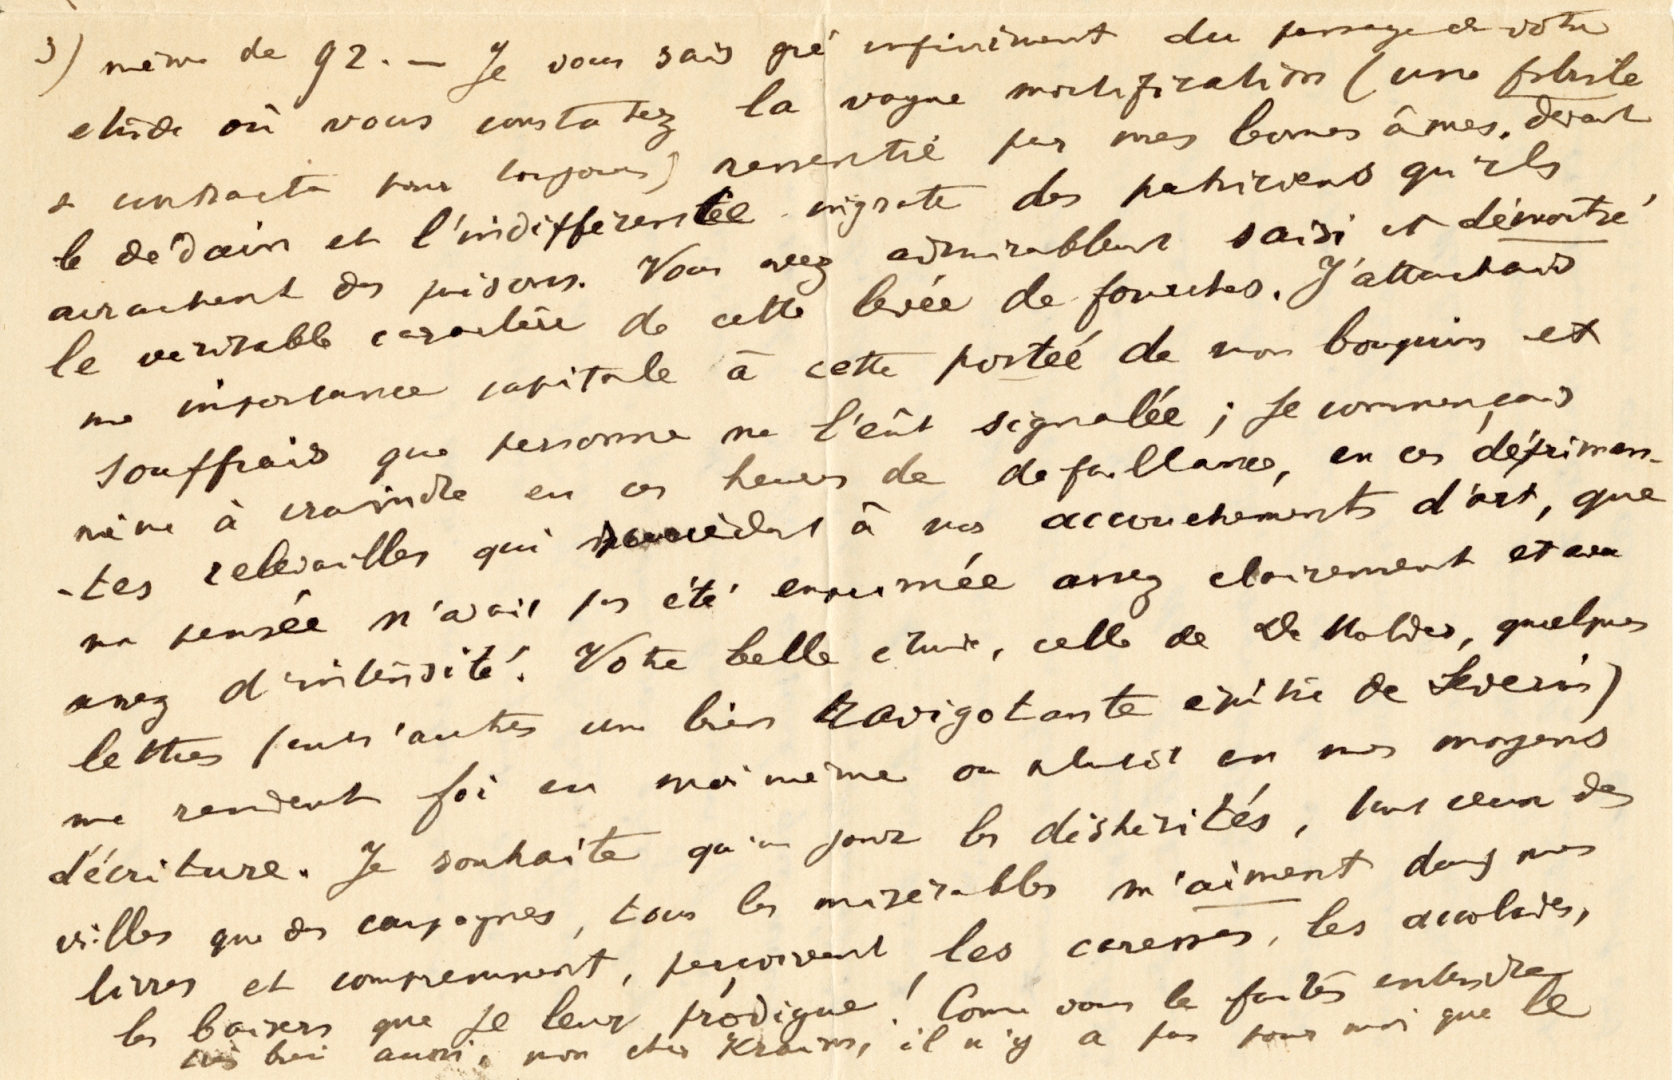 3) même de 92. — Je vous sais gré infiniment du passage de votre
étude où vous constatez la vague mortification (une fibrile
se contracta pour toujours) ressentie par mes bonnes âmes, devant
le dédain et l'indifférence ingrate des patriciens qu'ils
arrachent des prisons. Vous avez admirablement saisi et démontré
le véritable caractère de cette levée de fourches. J'attachais
une importance capitale à cette portée de mon bouquin et
souffrais que personne ne l'eût signalée ; je commençais
même à craindre en ces heures de défaillance, en ces déprimen-
-tes relevailles qui succèdent à nos accouchements d'art, que
ma pensée n'avait pas été exprimée assez clairement et avec
assez d'intensité. Votre belle étude, celle de De Molder, quelques
lettres (entr'autres une bien ravigotante épître de Séverin)
me rendent foi en moi même ou plutôt en mes moyens
d'écriture. Je souhaite qu'un jour les déshérités, tant ceux des
villes que des campagnes, tous les misérables m'aiment dans mes
livres et comprennent, perçoivent les caresses, les accolades,
les baisers que je leur prodigue ! Comme vous le faites entendre
bien aussi, mon cher Krains, il n'y a pas pour moi que le